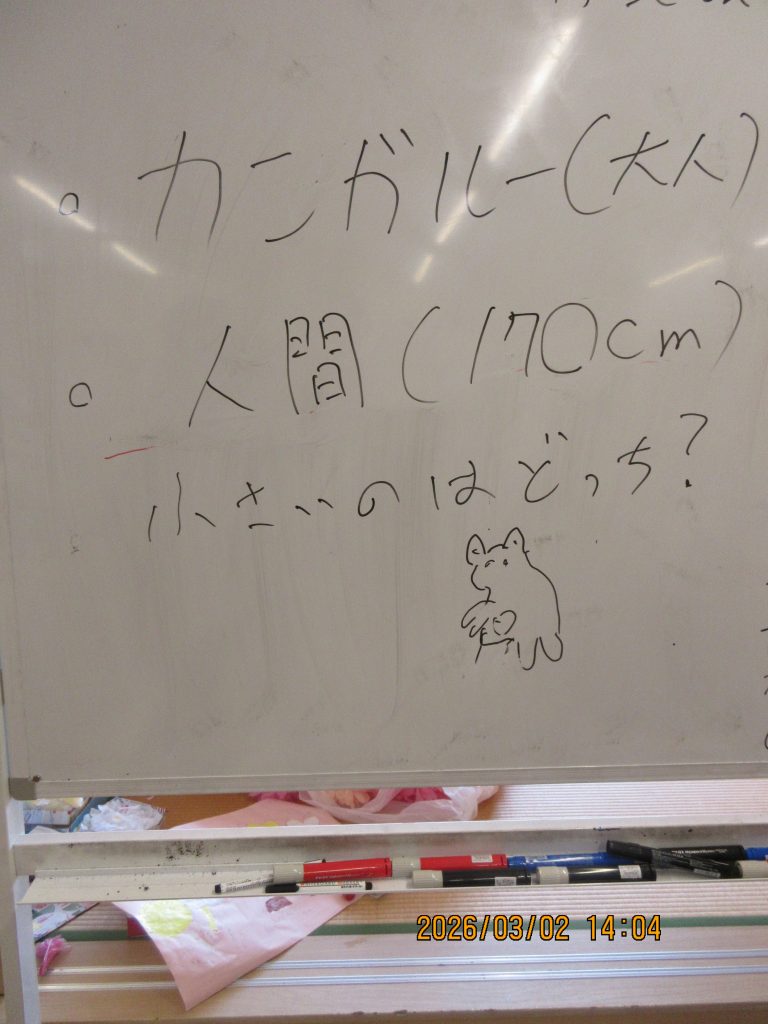 。カンガルー(大人)
。人間(170cm)
小さいのはどっち?
2026/03/02 14:04